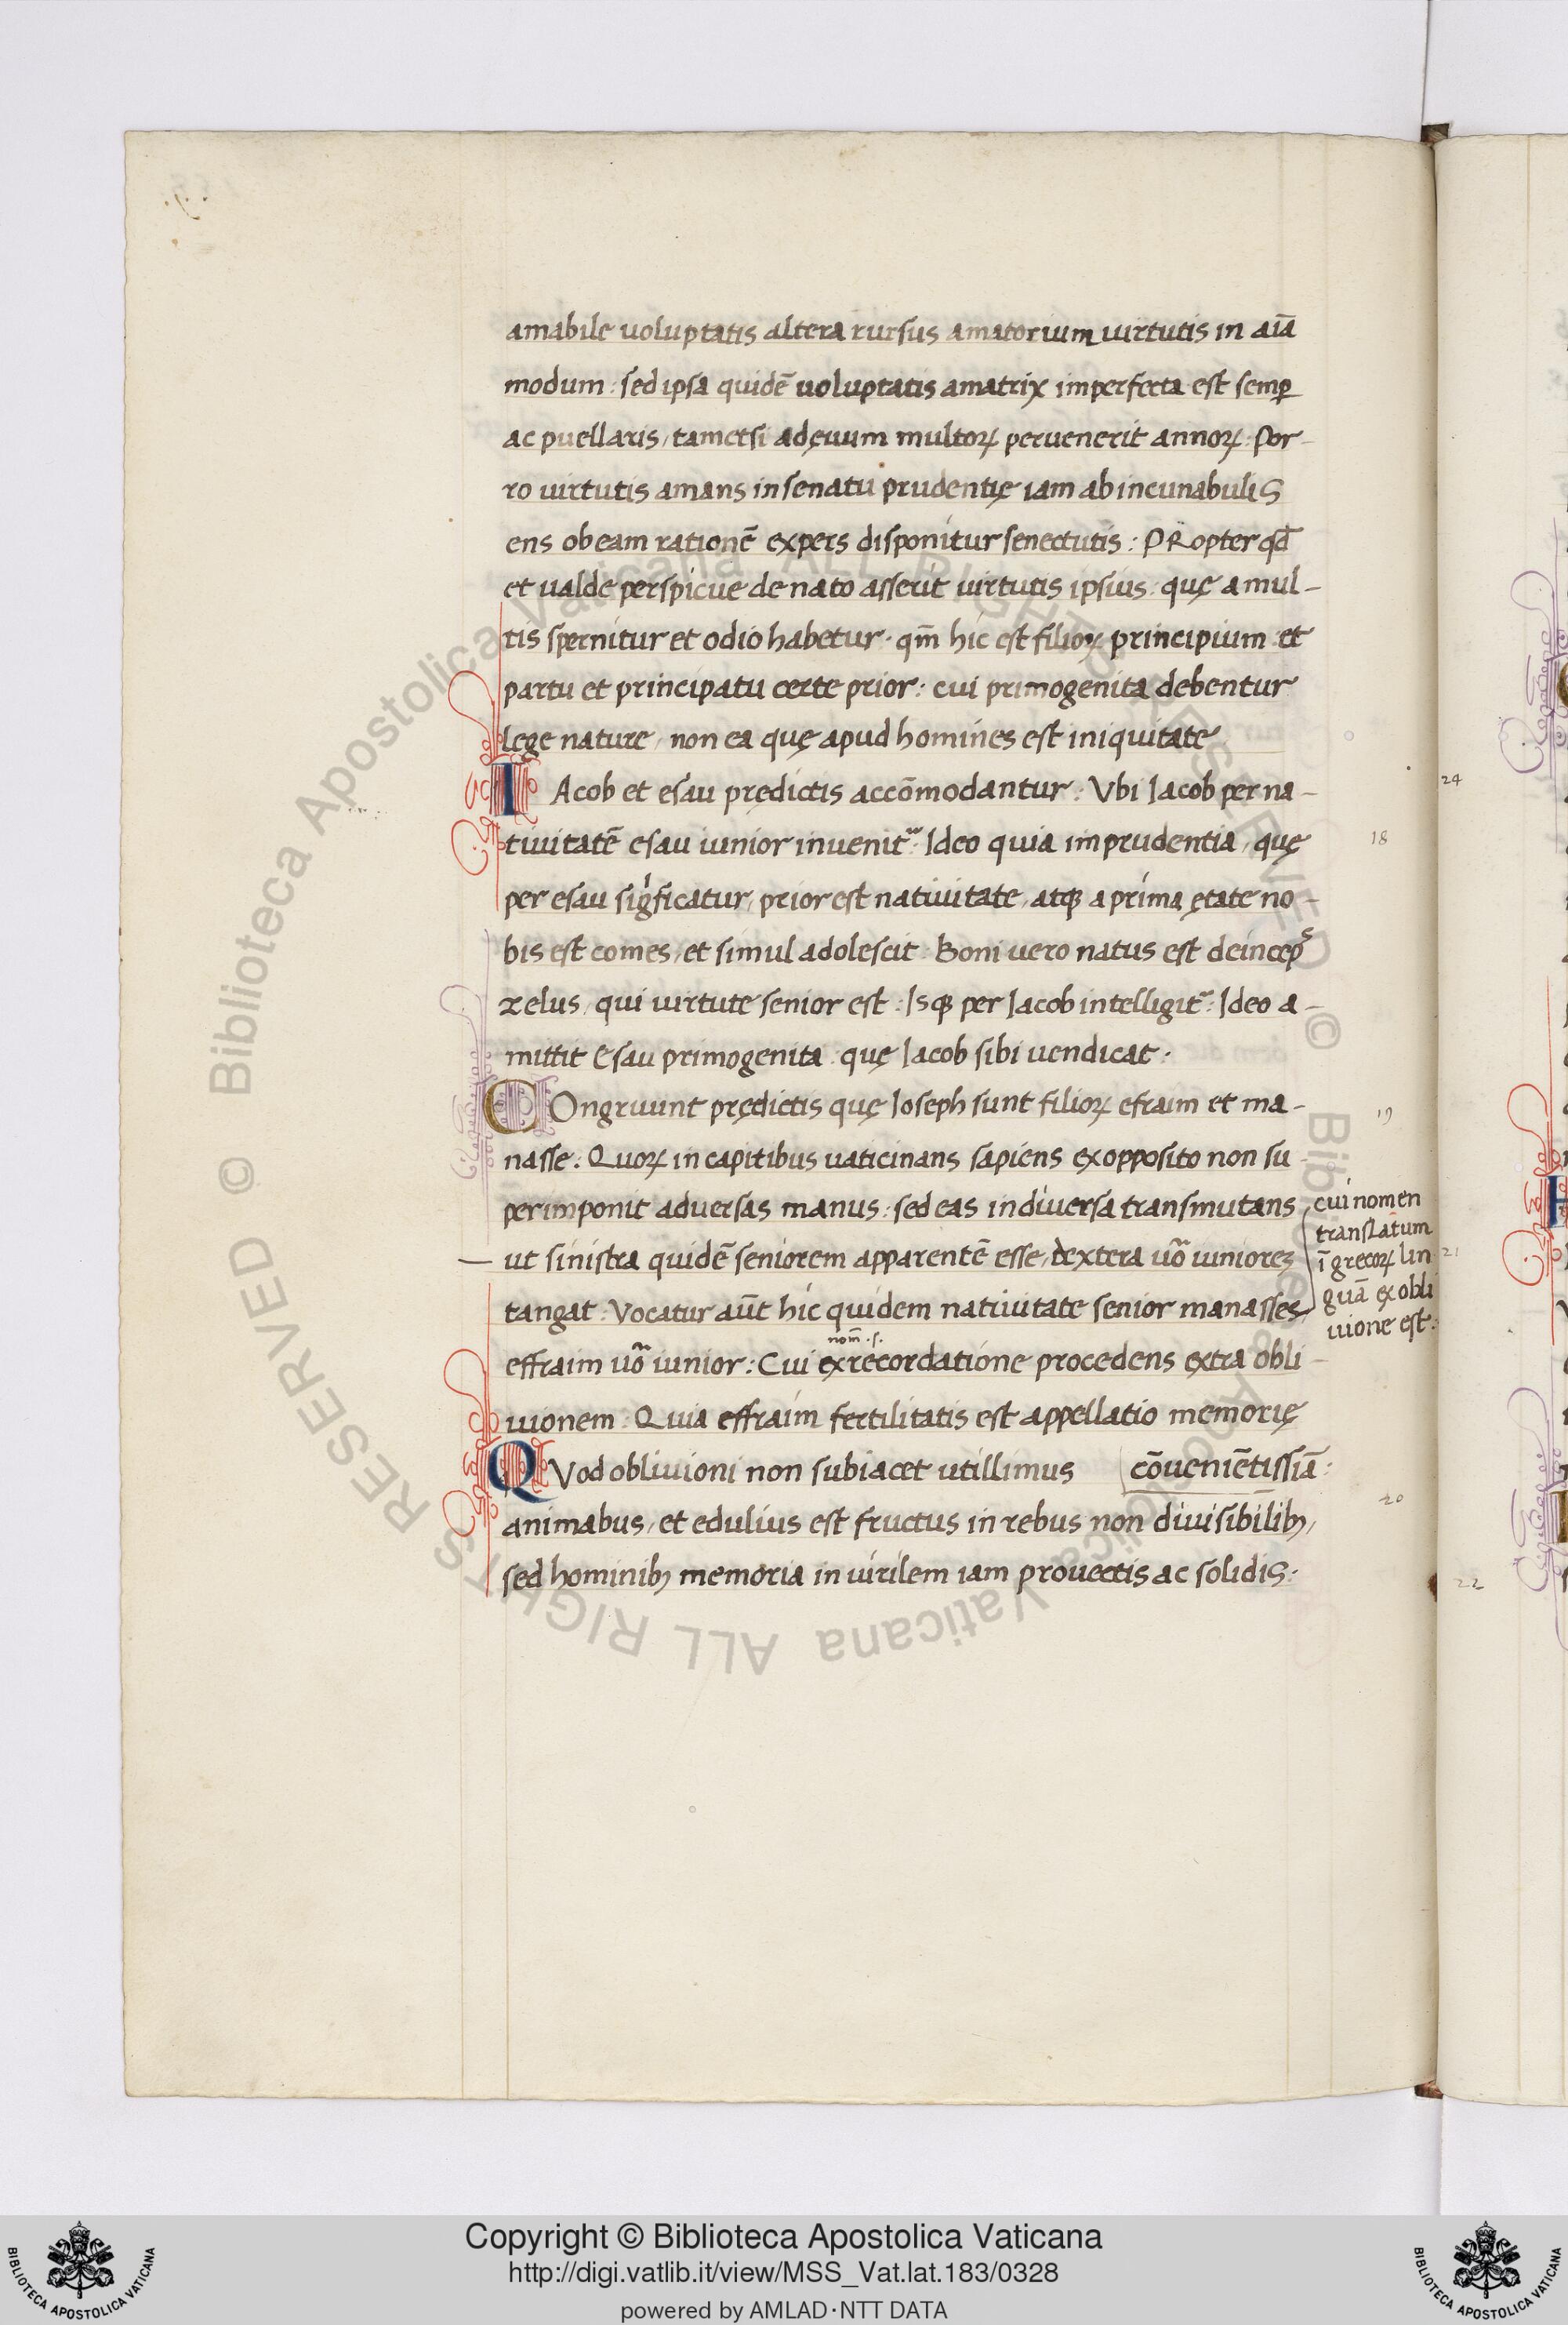 amabile uoluptatis altera rursus amatorium uirtutis in aīa
modum : sed ipsa quidē uoluptatis amatrix imperfecta est semꝑ
ac puellaris, tametsi ad ęuum multoꝝ peruenerit annoꝝ : Por-
ro uirtutis amans in senatu prudentię iam ab incunabuliS
ens ob eam rationē expers disponitur senectutis : PRopter qd̄
et ualde perspicue de nato asserit uirtutis ipsius : quę a mul-
tis spernitur et odio habetur · qm̄ hic est filioꝝ principium : et
partu et principatu certe prior : cui primogenita debentur
lege nature, non ea quę apud homines est iniquitate
IAcob et esau prędictis accōmodantur : Vbi Iacob per na-
tiuitatē esau iunior inuenit᷑ : Ideo quia imprudentia, quę
per esau sigficatur, prior est natiuitate, atqꝫ a prima ętate no-
bis est comes, et simul adolescit : Boni uero natus est deinceps
zelus, qui uirtute senior est : Isqꝫ per Iacob intelligit᷑ : Ideo a-
mittit Esau primogenita : quę Iacob sibi uendicat :
COngruunt prędictis quę Ioseph sunt filioꝝ efraim et ma-
nasse : Quoꝝ in capitibus uaticinans sapiens ex opposito non su
perimponit aduersas manus : sed eas in diuersa transmutans
ut sinistra quidē seniorem apparentē esse, dextera uō iuniorez
tangat : Vocatur aūt hic quidem natiuitate senior manasses
cui nomen
translatum
ī grecoꝝ lin
guā ex obli
uione est :
nom̄ .s.
effraim uō iunior : Cui ex recordatione procedens extra obli-
uionem : Quia effraim fertilitatis est appellatio memorię
QVod obliuioni non subiacet utillimus cōueniētissīa :
animabus, et edulius est fructus in rebus non diuisibilibꝫ,
sed hominibꝫ memoria in uirilem iam prouectis ac solidiS :
18
19
20
24
21
22
Copyright © Biblioteca Apostolica Vaticana
http://digi.vatlib.it/view/MSS_Vat.lat.183/0328
powered by AMLAD·NTT DATA
BIBLIOTECA APOSTOLICA VATICANA
BIBLIOTECA APOSTOLICA VATICANA
© Biblioteca Apostolica Vaticana ALL RIGHTS RESERVED © Biblioteca Apostolica Vaticana ALL RIGHTS RESERVED